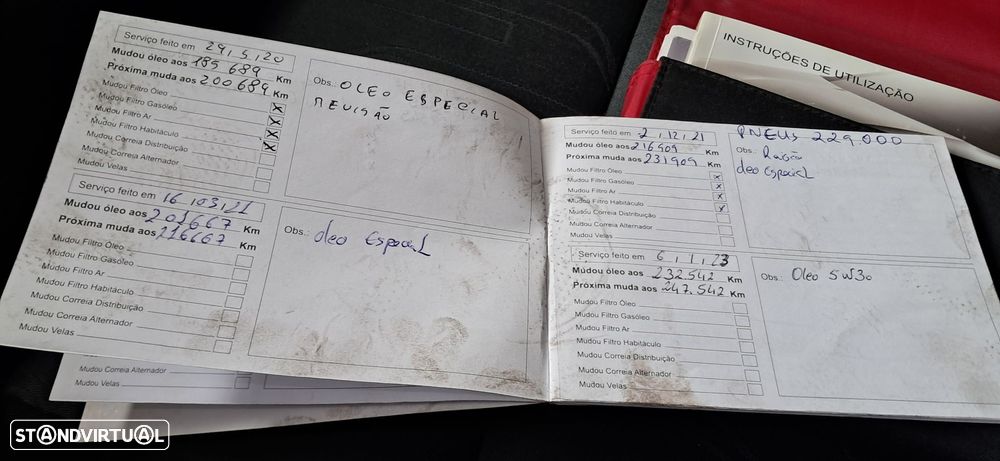 Serviço feito em 29.5.20
Mudou óleo aos 185 689 Km
Próxima muda aos 200 689 Km
Mudou Filtro Óleo
Mudou Filtro Gasóleo
Mudou Filtro Ar
Mudou Filtro Habitáculo
Mudou Correia Distribuição
Mudou Correia Alternador
Mudou Velas
Obs.: OLEO ESPECIAL
REVISÃO
Serviço feito em 16 103121
Mudou óleo aos 201667 Km
Próxima muda aos 216667 Km
Mudou Filtro Óleo
Mudou Filtro Gasóleo
Mudou Filtro Ar
Mudou Filtro Habitáculo
Mudou Correia Distribuição
Mudou Correia Alternador
Mudou Velas
Obs.: oleo Especial
Mudou Correia Alternador
Mudou Velas
Serviço feito em 2.12.21
Mudou óleo aos 216909 Km
Próxima muda aos 231909 Km
Mudou Filtro Óleo
Mudou Filtro Gasóleo
Mudou Filtro Ar
Mudou Filtro Habitáculo
Mudou Correia Distribuição
Mudou Correia Alternador
Mudou Velas
PNEUS 229.000
Obs:
oleo Especial
Serviço feito em 6.1.23
Múdou óleo aos 232.542 Km
Próxima muda aos 247.542 Km
Mudou Filtro Óleo
Mudou Filtro Gasóleo
Mudou Filtro Ar
Mudou Filtro Habitáculo
Mudou Correia Distribuição
Mudou Correia Alternador
Mudou Velas
Obs: Oleo 5W30
INSTRUÇÕES DE UTILIZAÇÃO
STANDVIRTUAL